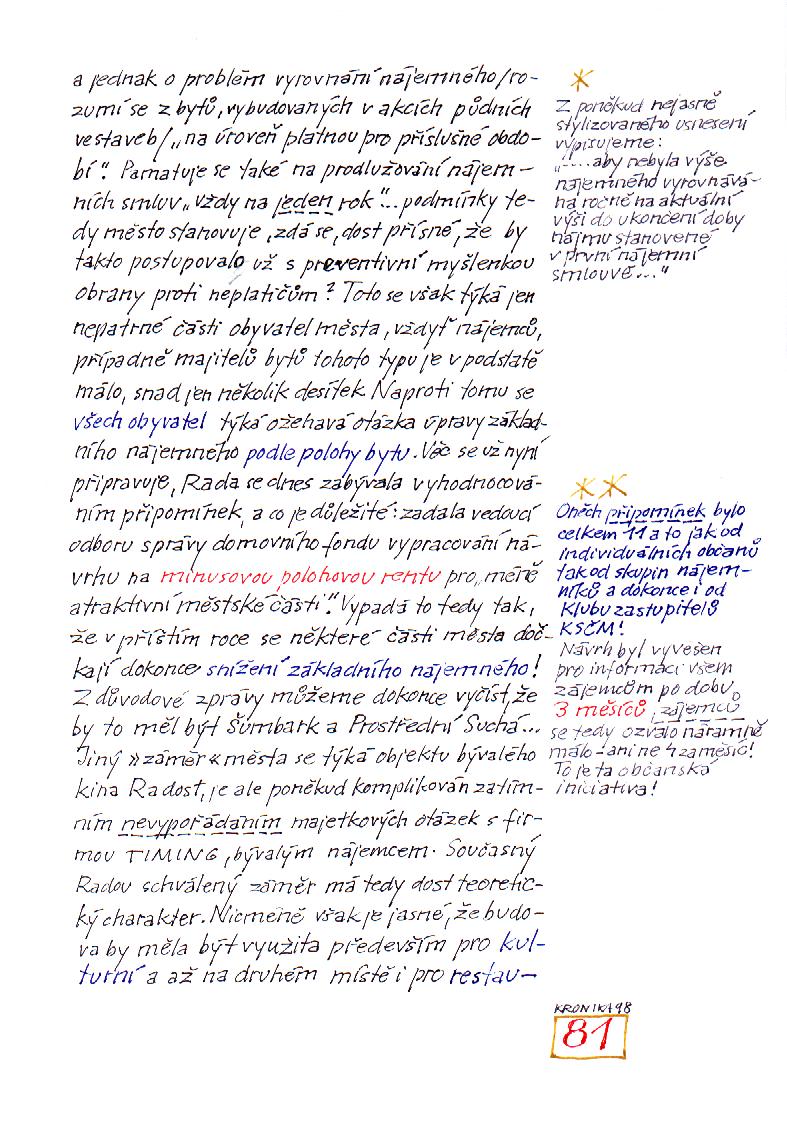 a jednak o problém vyrovnání nájemného/ro-
zumí se z bytů, vybudovaných v akcích půdních
vestaveb/„na úroveň platnou pro příslušné obdo-
bí". Pamatuje se také na prodlužování nájem-
ních smluv „vždy na jeden rok"... podmínky te-
dy město stanovuje, zdá se, dost přísné, že by
takto postupovalo už s preventivní myšlenkou
obrany proti neplatičům? Toto se však týká jen
nepatrné části obyvatel města, vždyť nájemců,
případně majitelů bytů tohoto typu je v podstatě
málo, snad jen několik desítek. Naproti tomu se
všech obyvatel týká ožehavá otázka úpravy základ-
ního nájemného podle polohy bytu. Věc se už nyní
připravuje, Rada se dnes zabývala vyhodnocová-
ním připomínek, a co je důležité: zadala vedoucí
odboru správy domovního fondu vypracování ná-
vrhu na minusovou polohovou rentu pro „méně
atraktivní městské části". Vypadá to tedy tak,
že v příštím roce se některé části města doč-
kají dokonce snížení základního nájemného!
Z důvodové zprávy můžeme dokonce vyčíst, že
by to měl být Šumbark a Prostřední Suchá...
Jiný »záměr« města se týká objektu bývalého
kina Radost, je ale poněkud komplikován zatím-
ním nevypořádáním majetkových otázek s fir-
mou TIMING, bývalým nájemcem. Současný
Radou schválený záměr má tedy dost teoretic-
ký charakter. Nicméně však je jasné, že budo-
va by měla být využita především pro kul-
turní a až na druhém místě i pro restau-
*
Z poněkud nejasně
stylizovaného usnesení
vypisujeme:
"....aby nebyla výše
nájemného vyrovnává-
na ročně na aktuální
výši do ukončení doby
nájmu stanovené
v první nájemní
smlouvě..."
**
Oněch připomínek bylo
celkem 11 a to jak od
individuálních občanů
tak od skupin nájem-
níků a dokonce i od
Klubu zastupitelů
KSČM!
Návrh byl vyvěšen
pro informaci všem
zájemcům po dobu
3 měsíců, zájemců
se tedy ozvalo náramně
málo - ani ne 4 za měsíc!
To je ta občanská
iniciativa!
KRONIKA 98
81